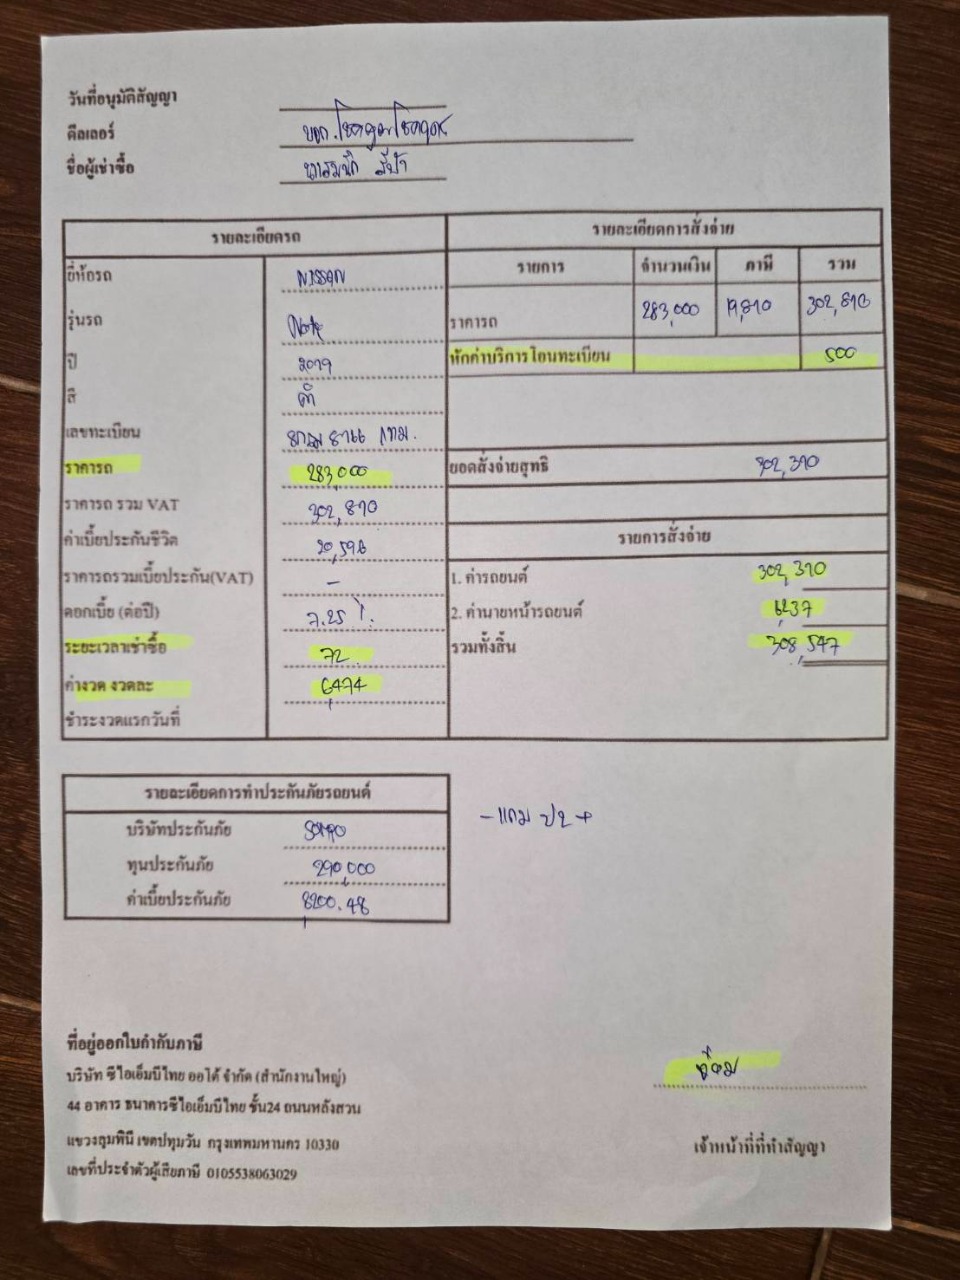 วันที่อนุมัติสัญญา
ดีลเลอร์ บจก.
ชื่อผู้เช่าซื้อ
รายละเอียดรถ
ยี่ห้อรถ NISSAN
รุ่นรถ Note
ปี 2019
สี ดำ
เลขทะเบียน กทม.
ราคารถ 283,000
ราคารถ รวม VAT 302,810
ค่าเบี้ยประกันชีวิต 20,596
ราคารถรวมเบี้ยประกัน(VAT) -
ดอกเบี้ย (ต่อปี) 7.25 %.
ระยะเวลาเช่าซื้อ 72
ค่างวด งวดละ 6,474
ชำระงวดแรกวันที่
รายละเอียดการสั่งจ่าย
รายการ จำนวนเงิน ภาษี รวม
ราคารถ 283,000 19,810 302,810
หักค่าบริการโอนทะเบียน 500
ยอดสั่งจ่ายสุทธิ 302,310
รายการสั่งจ่าย
1. ค่ารถยนต์ 302,310
2. ค่านายหน้ารถยนต์ 6,237
รวมทั้งสิ้น 308,547
รายละเอียดการทำประกันภัยรถยนต์
บริษัทประกันภัย SOMPO
ทุนประกันภัย 290,000
ค่าเบี้ยประกันภัย 8,200.48
- แถม ป2+
ที่อยู่ออกใบกำกับภาษี
บริษัท ซีไอเอ็มบีไทย ออโต้ จำกัด (สำนักงานใหญ่)
44 อาคาร ธนาคารซีไอเอ็มบีไทย ชั้น24 ถนนหลังสวน
แขวงลุมพินี เขตปทุมวัน กรุงเทพมหานคร 10330
เลขที่ประจำตัวผู้เสียภาษี 0105538063029
เจ้าหน้าที่ที่ทำสัญญา